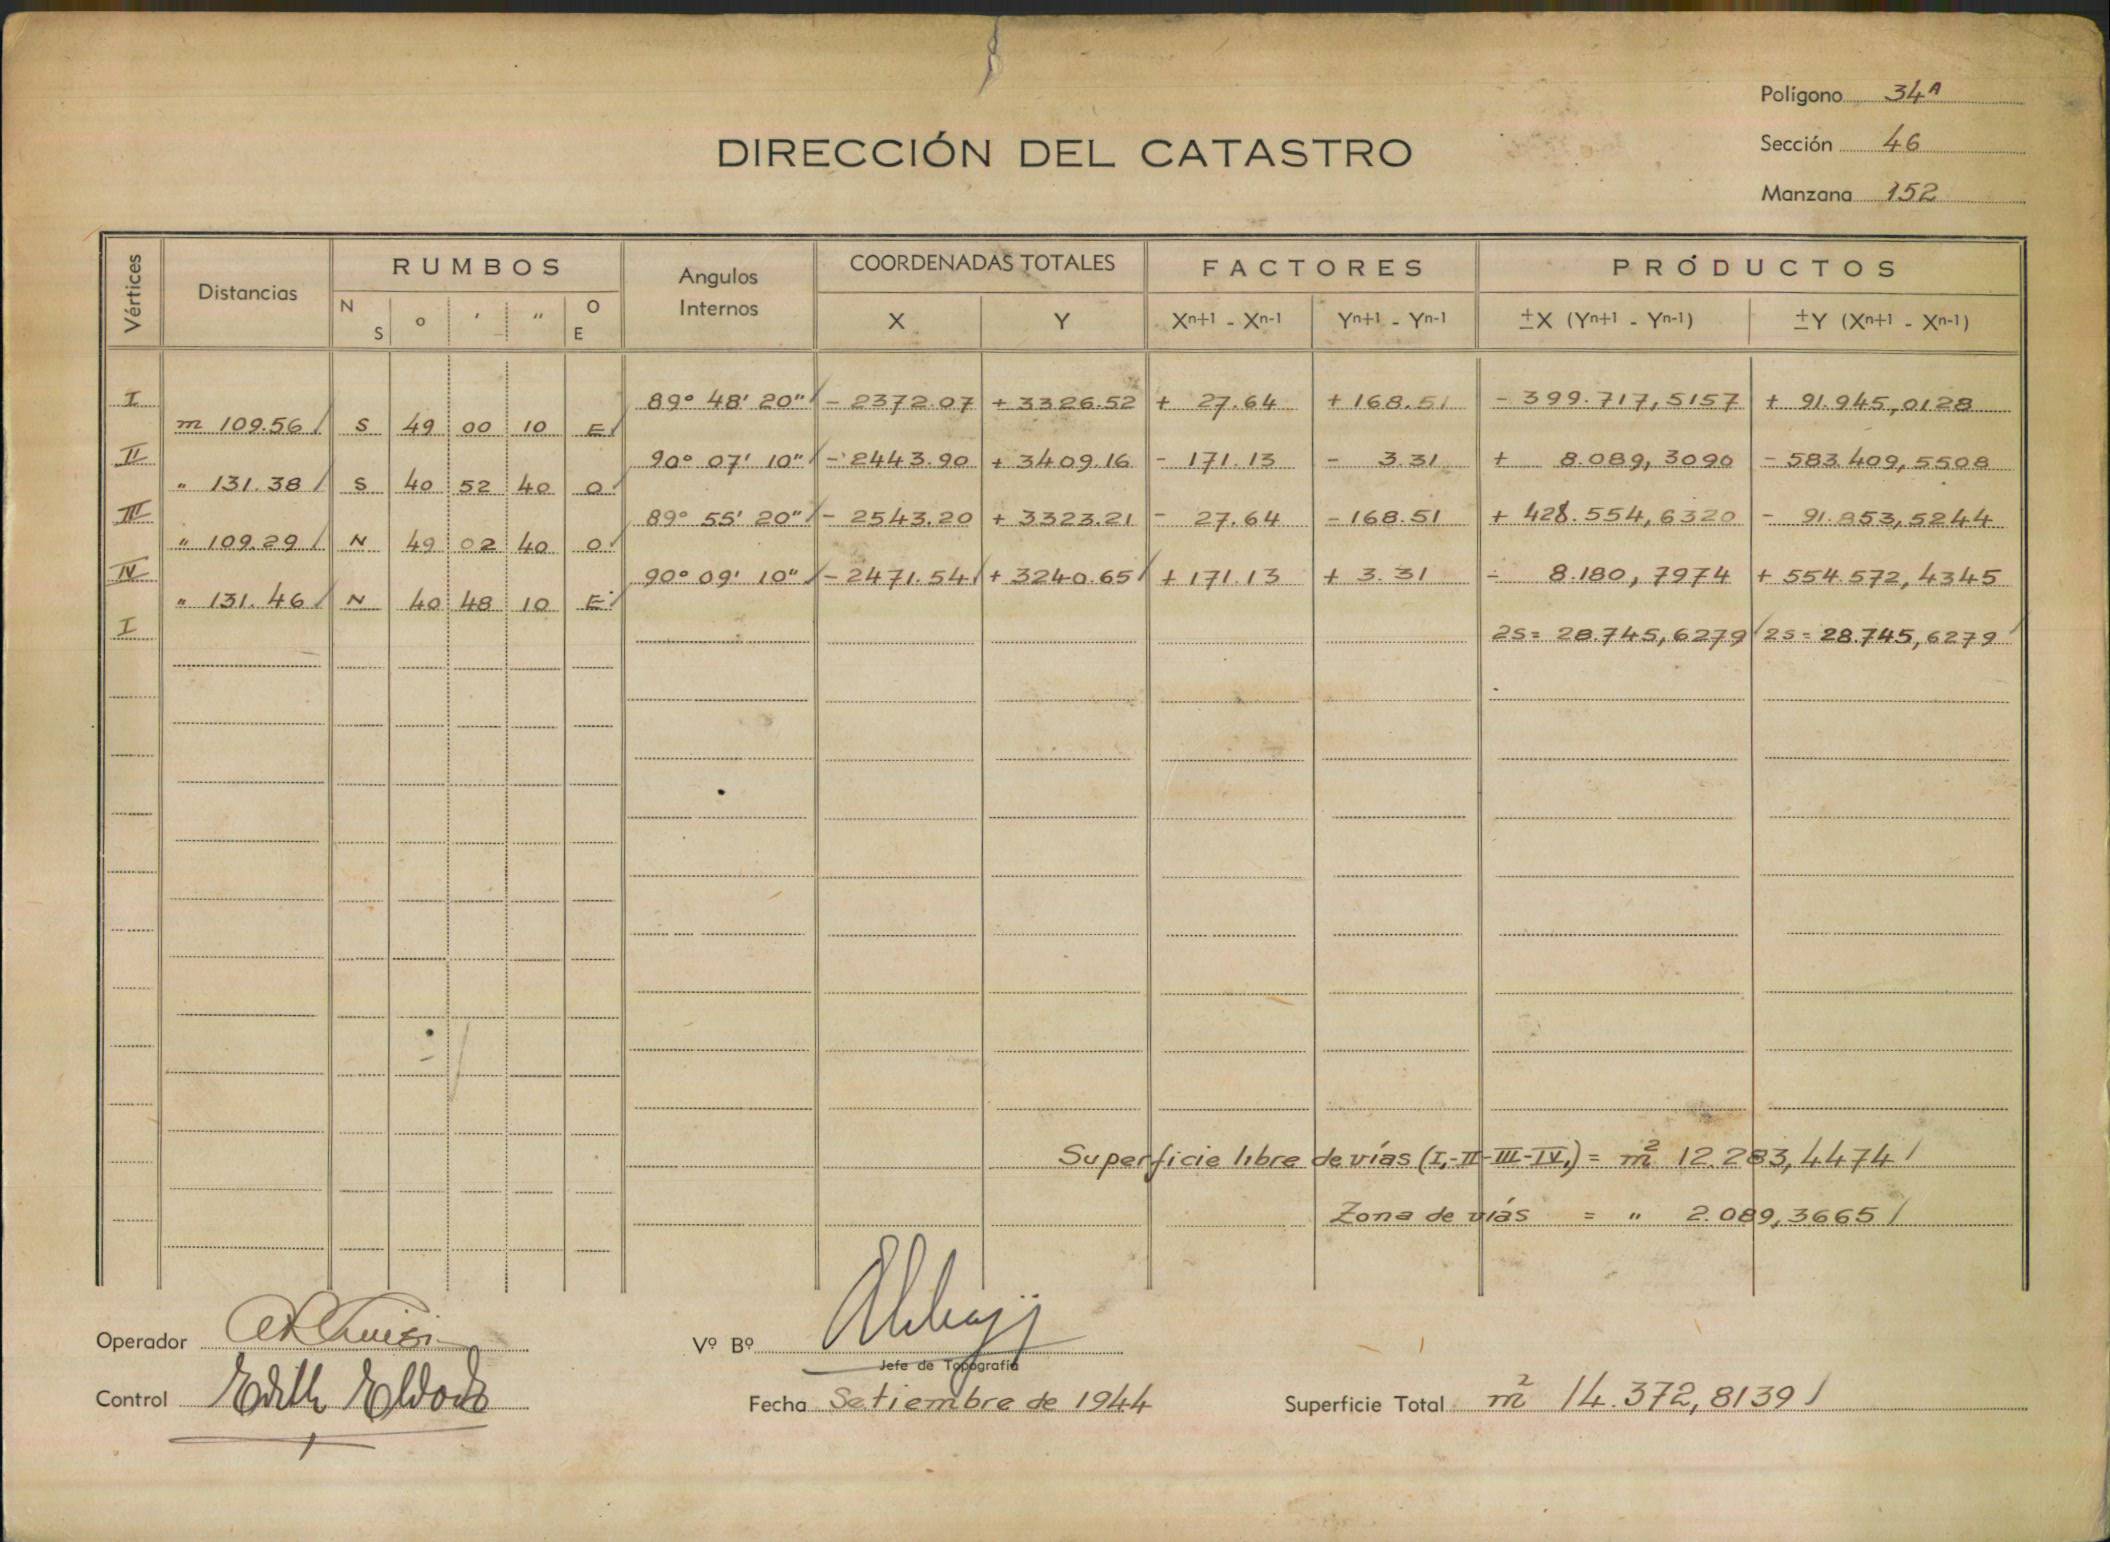 Polígono 34A
DIRECCIÓN DEL CATASTRO
Sección 46
Manzana 152
Vértices Distancias RUMBOS Angulos Internos COORDENADAS TOTALES FACTORES PRODUCTOS
N S o ' " O E X Y Xn+1 - Xn-1 Yn+1 - Yn-1 ±X (Yn+1 - Yn-1) ±Y (Xn+1 - Xn-1)
I 89° 48' 20" - 2372.07 + 3326.52 + 27.64 + 168.51 - 399.717,5157 + 91.945,0128
m 109.56 S 49 00 10 E
II 90° 07' 10" - 2443.90 + 3409.16 - 171.13 - 3.31 + 8.089,3090 - 583.409,5508
" 131.38 S 40 52 40 O
III 89° 55' 20" - 2543.20 + 3323.21 - 27.64 - 168.51 + 428.554,6320 - 91.853,5244
" 109.29 N 49 02 40 O
IV 90° 09' 10" - 2471.54 + 3240.65 + 171.13 + 3.31 - 8.180,7974 + 554.572,4345
" 131.46 N 40 48 10 E
I 2S = 28.745,6279 2S = 28.745,6279
Superficie libre de vías (I,-II-III-IV,) = m2 12.283,4474
Zona de viás = " 2.089,3665
Operador
Vº Bº
Jefe de Topografía
Control Edith
Fecha Setiembre de 1944
Superficie Total m2 14.372,8139